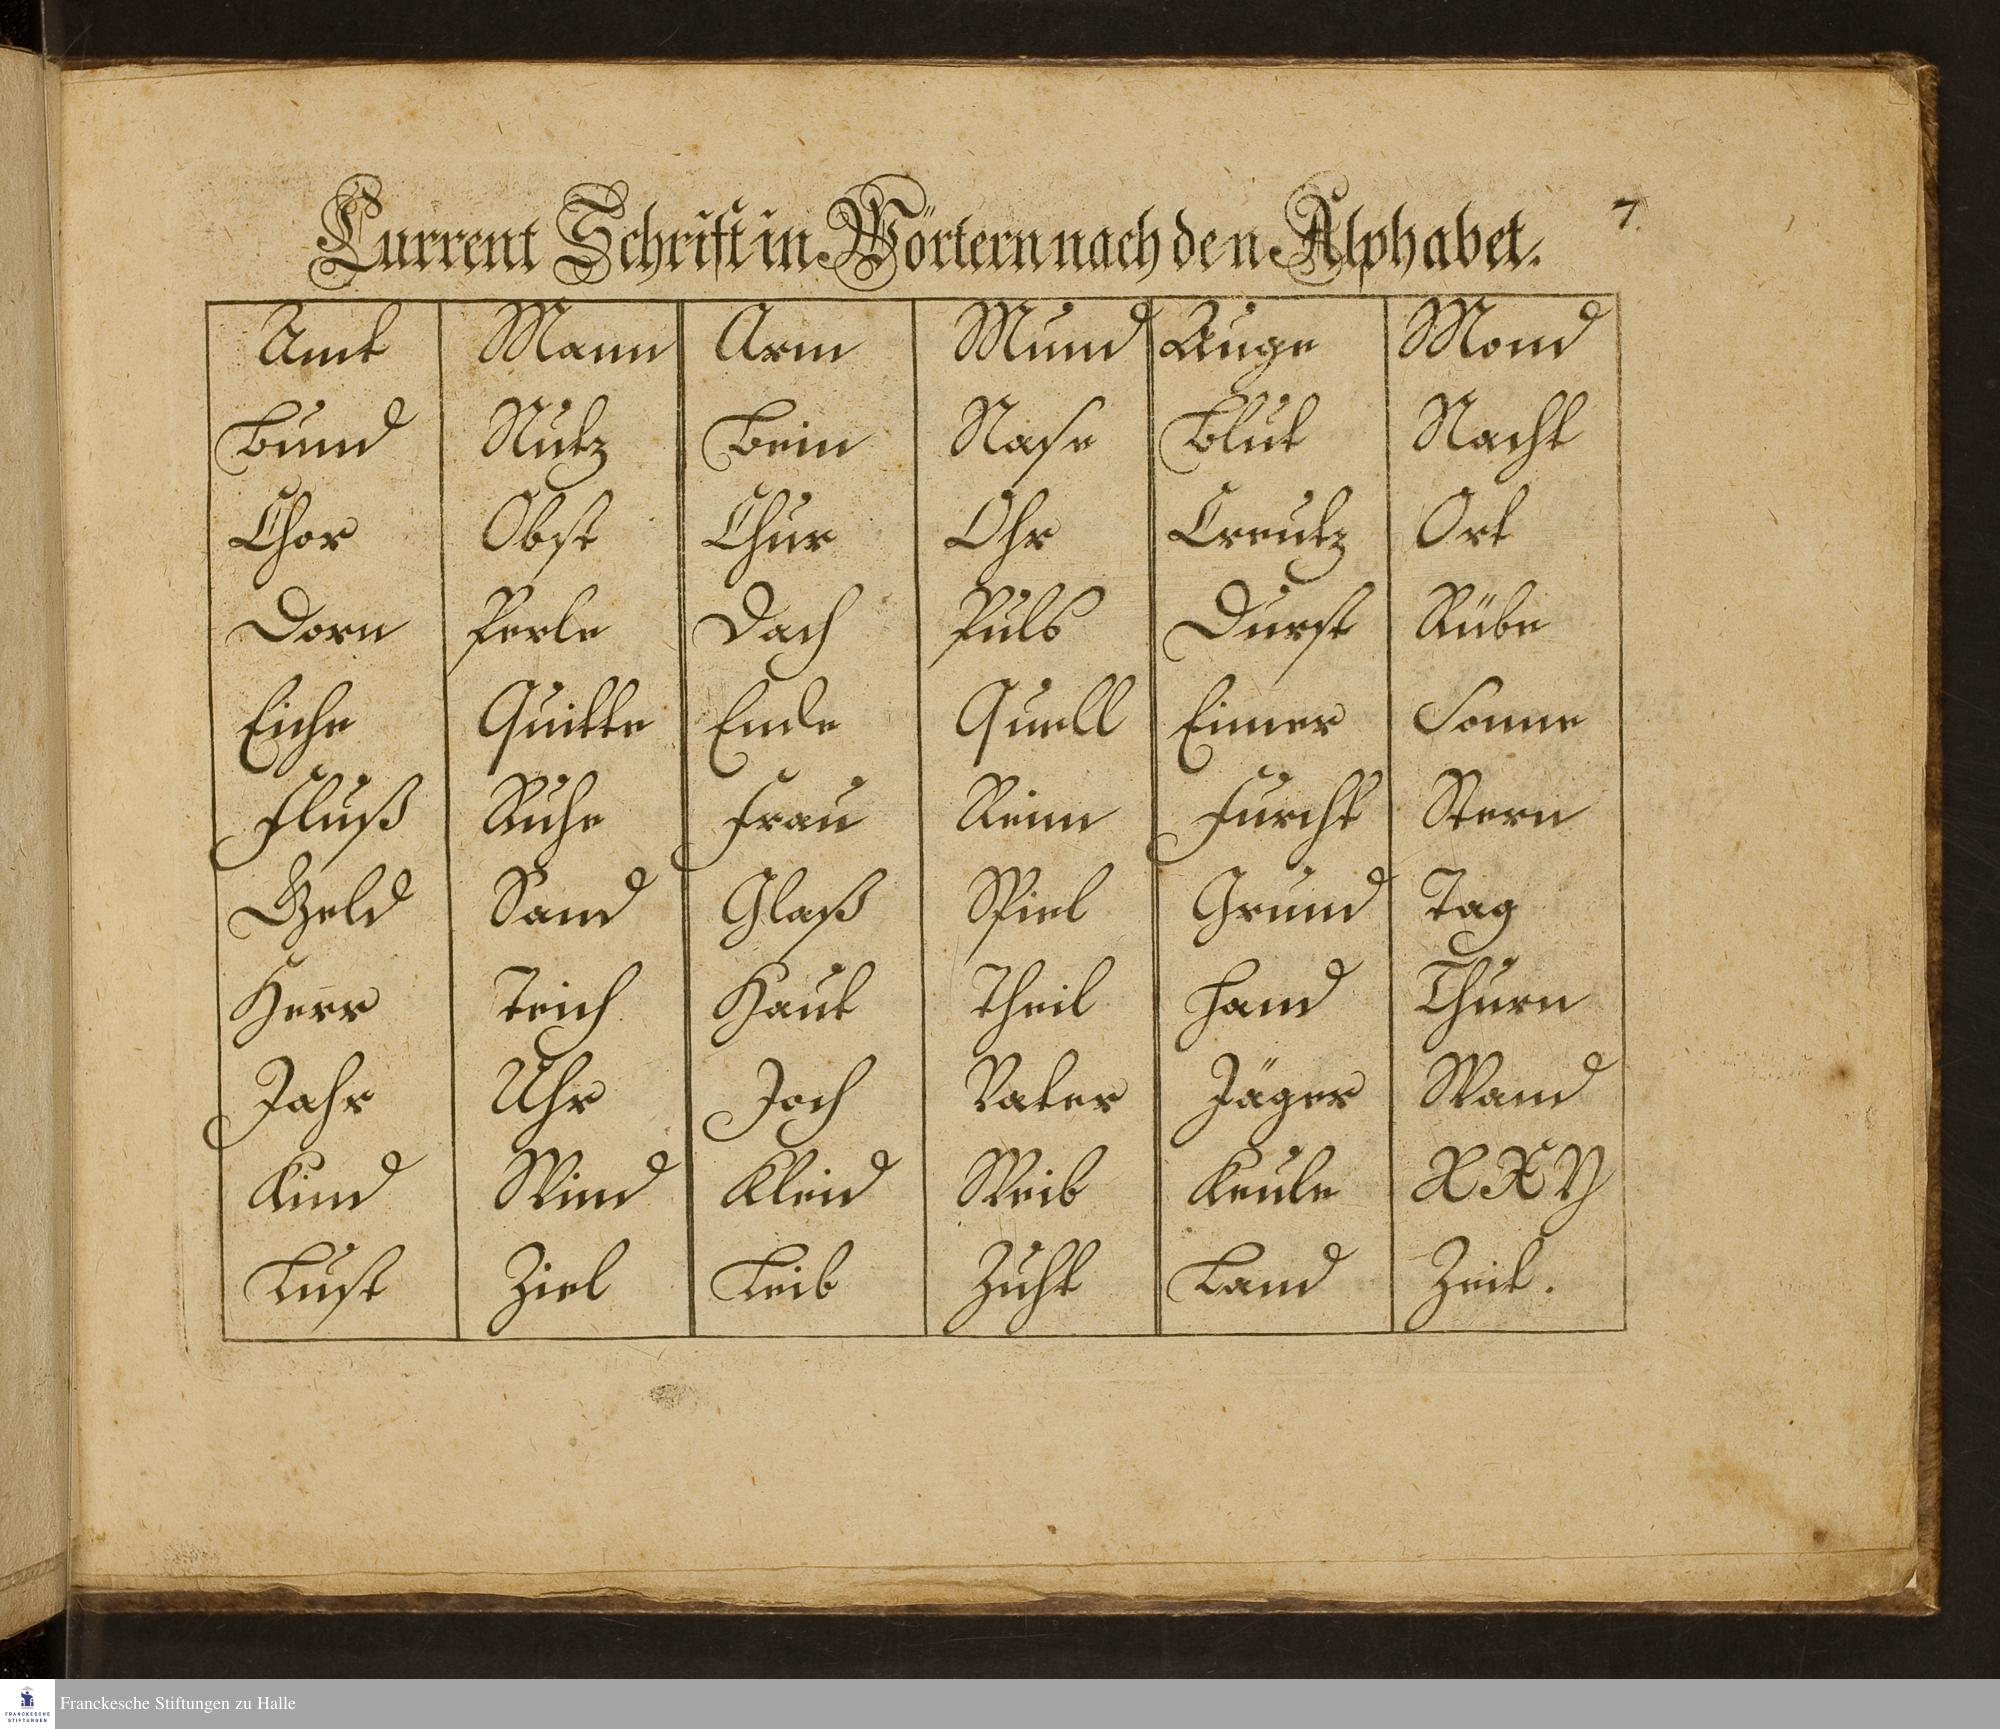 Current Schrifft in Wörtern nach den Alphabet.
7.
Amt Mann Arm Mund Auge Mond
Bund Nutz Bein Nase Blut Nacht
Chor Obst Chur Ohr Creutz Ort
Dorn Perle Dach Puls Durst Rübe
Eiche Quitte Ende Quell Eimer Sonne
Fluß Ruhe Frau Reim Furcht Stern
Geld Sand Glaß Spiel Grund Tag
Herr Teich Haut Theil Hand Thurn
Jahr Uhr Joch Vater Jäger Wand
Kind Wind Kleid Weib Keule X X Y
Lust Ziel Leib Zuht Land Zeit.
Franckesche Stiftungen zu Halle
FRANCKESCHE
STIFTUNGEN